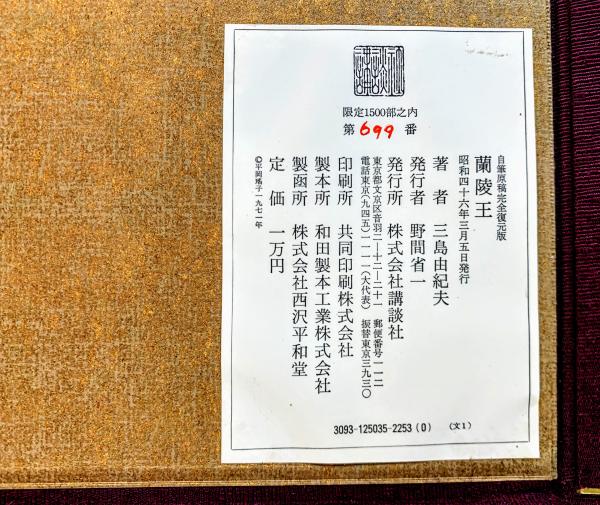 講談社
限定1500部之内
第699番
自筆原稿完全復元版
蘭陵王
昭和四十六年三月五日発行
著者 三島由紀夫
発行者 野間省一
発行所 株式会社講談社
東京都文京区音羽二―十二―二十一 郵便番号一一二
電話東京(九四五)一一一一(大代表) 振替東京三九三〇
印刷所 共同印刷株式会社
製本所 和田製本工業株式会社
製函所 株式会社西沢平和堂
定価 一万円
©平岡瑤子一九七一年
3093-125035-2253(0) (文1)